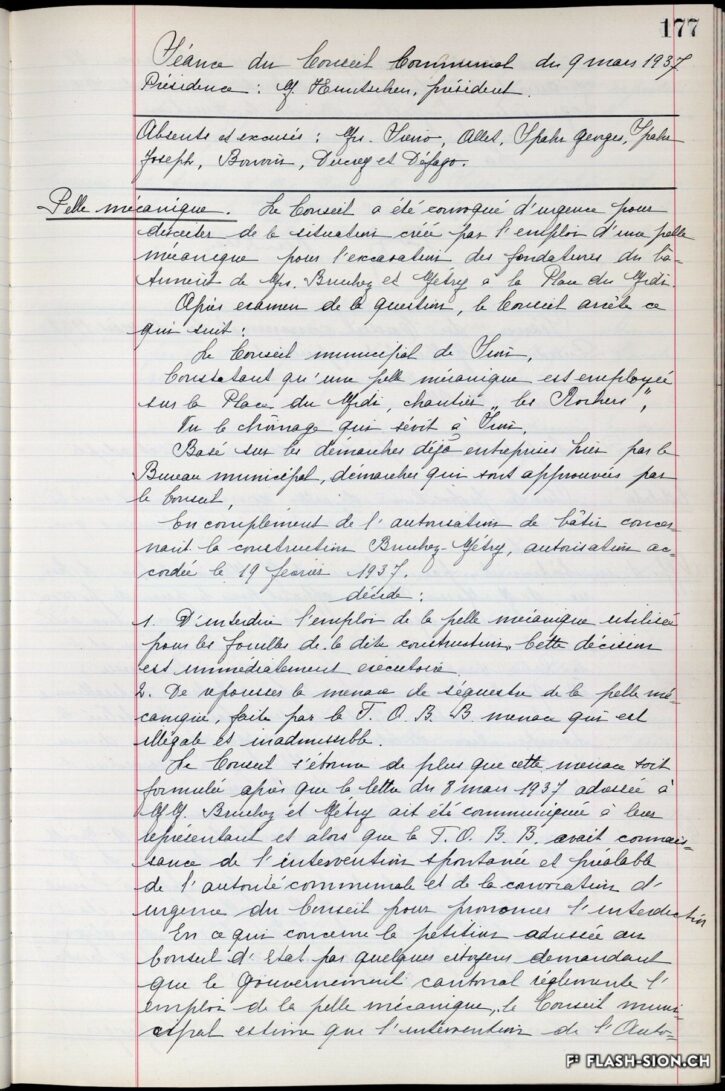 177
Séance du Conseil Communal du 9 mars 1937
Présidence : M. Kuntschen, président.
Absents et excusés : Mrs. Sierro, Allet, Spahr Georges, Spahr
Joseph, Bonvin, Ducrey et Défago.
Pelle mécanique. Le Conseil a été convoqué d'urgence pour
discuter de la situation créée par l'emploi d'une pelle
mécanique pour l'excavation des fondations du bâ-
timent de Mrs. Bruchez et Métry à la Place du Midi.
Après examen de la question, le Conseil arrête ce
qui suit :
Le Conseil municipal de Sion,
Constatant qu'une pelle mécanique est employée
sur la Place du Midi, chantier "les Rochers",
Vu le chômage qui sévit à Sion,
Basé sur les démarches déjà entreprises hier par le
Bureau municipal, démarches qui sont approuvées par
le Conseil,
En complément de l'autorisation de bâtir concer-
nant la construction Bruchez-Métry, autorisation ac-
cordée le 19 février 1937.
décide :
1. D'interdire l'emploi de la pelle mécanique utilisée
pour les fouilles de la dite construction. Cette décision
est immédiatement exécutoire.
2. De repousser la menace de séquestre de la pelle mé-
canique, faite par la F. O. B. B. menace qui est
illégale et inadmissible.
Le Conseil s'étonne de plus que cette menace soit
formulée après que la lettre du 8 mars 1937 adressée à
MM. Bruchez et Métry ait été communiquée à leur
représentant et alors que la F. O. B. B. avait connais-
sance de l'intervention spontanée et préalable
de l'autorité communale et de la convocation d'
urgence du Conseil pour prononcer l'interdiction
En ce qui concerne la pétition adressée au
Conseil d'Etat par quelques citoyens demandant
que le Gouvernement cantonal réglemente l'
emploi de la pelle mécanique, le Conseil muni-
cipal estime que l'intervention de l'Auto-
FLASH-SION.CH